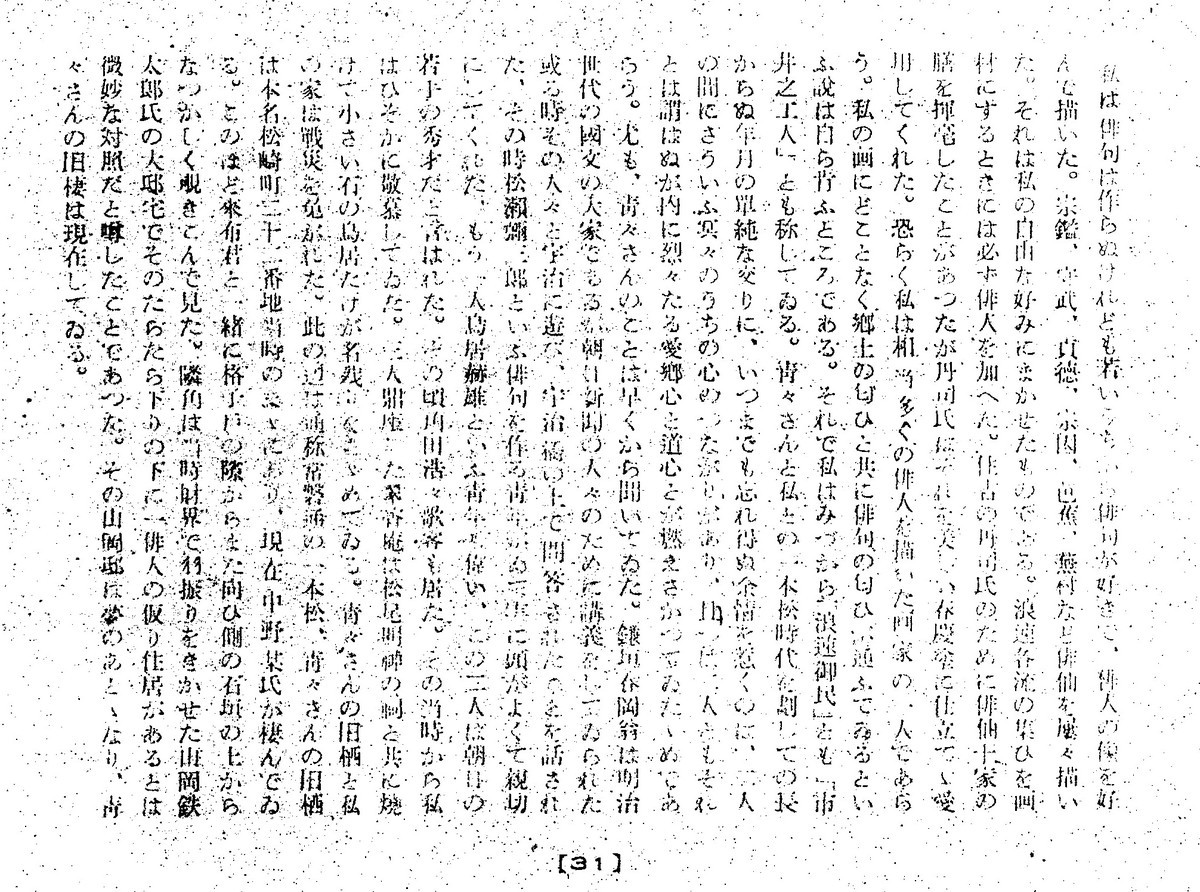 私は俳句は作らぬけれども若いうちから俳句が好きで、俳人の像を好
んで描いた。宗鑑、守武、貞徳、宗因、芭蕉、蕪村など俳仙を屡々描い
た。それは私の自由な好みにまかせたものである。浪速各流の集ひを画
材にするときには必ず俳人を加へた。住吉の丹司氏のために俳仙十家の
膳を揮毫したことがあつたが丹司氏はそれを美しい春慶塗に仕立てゝ愛
用してくれた。恐らく私は相当多くの俳人を描いた画家の一人であら
う。私の画にどことなく郷土の匂ひと共に俳句の匂ひが通ふてゐるとい
ふ説は自ら肯ふところである。それで私はみづから「浪速御民」とも「市
井之工人」とも称してゐる。青々さんと私との一本松時代を劃しての長
からぬ年月の単純な交りに、いつまでも忘れ得ぬ余情を惹くのに、二人
の間にさういふ冥々のうちの心のつながりがあり、且つは二人ともそれ
とは謂はぬが内に烈々たる愛郷心と道心とが燃えさかつてゐたゝめであ
らう。尤も、青々さんのことは早くから聞いてゐた。鎌垣春岡翁は明治
世代の國文の大家であるが朝日新聞の人々のために講義をしてゐられた
或る時その人々と宇治に遊び、宇治橋の上で問答されたことを話され
た、その時松瀬彌三郎といふ俳句を作る青年がゐて実に頭がよくて親切
にしてくれた、もう一人鳥居赫雄といふ青年も偉い、この二人は朝日の
若手の秀才だと言はれた。その頃角田浩々歌客も居た。その当時から私
はひそかに敬慕してゐた。三人鼎座した 庵は松尾明神の祠と共に焼
けて小さい石の鳥居だけが名残りをとゞめてゐる。青々さんの旧栖と私
の家は戦災を免がれた。此の辺は通称常磐通の一本松、青々さんの旧栖
は本名松崎町二十二番地当時のまゝにあり、現在中野某氏が棲んでゐ
る。このほど來布君と一緒に格子戸の隙からまた向ひ側の石垣の上から
なつかしく覗きこんで見た。隣角は当時財界で羽振りをきかせた山岡鉄
太郎氏の大邸宅でそのだらだら下りの下に一俳人の仮り住居があるとは
微妙な対照だと噂したことであつた。その山岡邸は夢のあとゝなり、青
々さんの旧棲は現在してゐる。
[31]